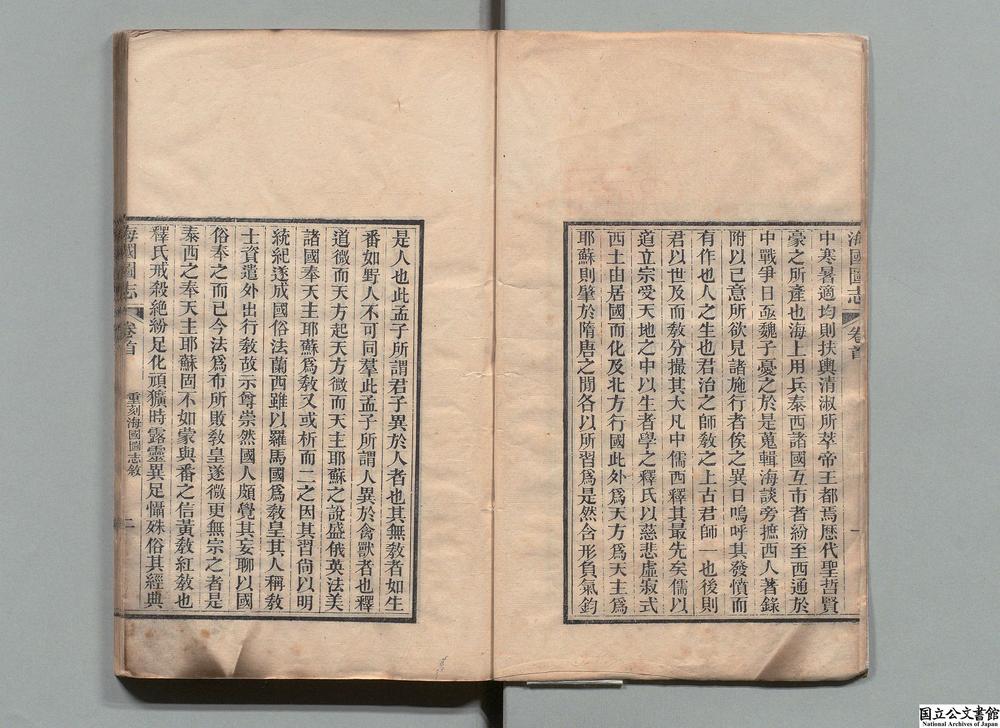 海國圖志
卷首
一
中寒暑適均則扶輿清淑所萃帝王都焉歷代聖哲賢
豪之所產也海上用兵泰西諸國互市者紛至西通於
中戰爭日亟魏子憂之於是蒐輯海談旁摭西人著錄
附以己意所欲見諸施行者俟之異日嗚呼其發憤而
有作也人之生也君治之師教之上古君師一也後則
君以世及而教分撮其大凡中儒西釋其最先矣儒以
道立宗受天地之中以生者學之釋氏以慈悲虛寂式
西土由居國而化及北方行國此外爲天方爲天主爲
耶蘇則肇於隋唐之間各以所習爲是然含形負氣鈞
是人也此孟子所謂君子異於人者也其無教者如生
番如野人不可同羣此孟子所謂人異於禽獸者也釋
道微而天方起天方微而天主耶蘇之說盛俄英法美
諸國奉天主耶蘇爲教又或析而二之因其習尚以明
統紀遂成國俗法蘭西雖以羅馬國爲教皇其人稱教
士資遣外出行教故示尊崇然國人頗覺其妄聊以國
俗奉之而已今法爲布所敗教皇遂微更無宗之者是
泰西之奉天主耶蘇固不如蒙與番之信黃教紅教也
釋氏戒殺絶紛足化頑獷時露靈異足懾殊俗其經典
海國圖志
卷首
重刻海國圖志敘
二
国立公文書館
National Archives of Japan